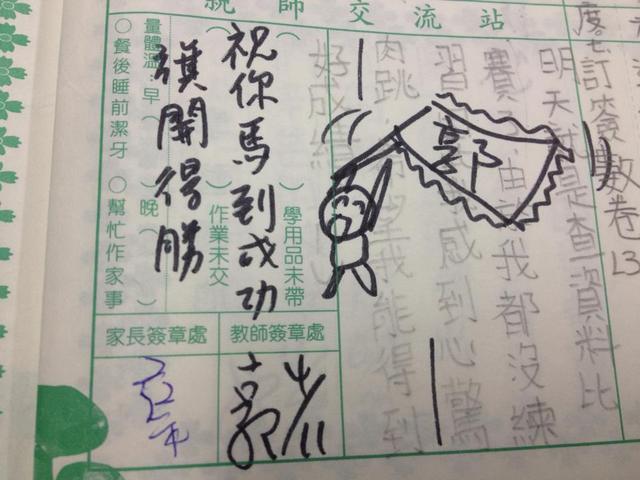 親師交流站
數卷13
明天就是查資料比
賽,由於我都沒練
習 感到心驚
肉跳,希望我能得到
好成績
郭
祝你馬到成功
旗開得勝
( )學用品未帶
( )作業未交
量體溫:早( )晚( )
○餐後睡前潔牙 ○幫忙作家事
教師簽章處
家長簽章處